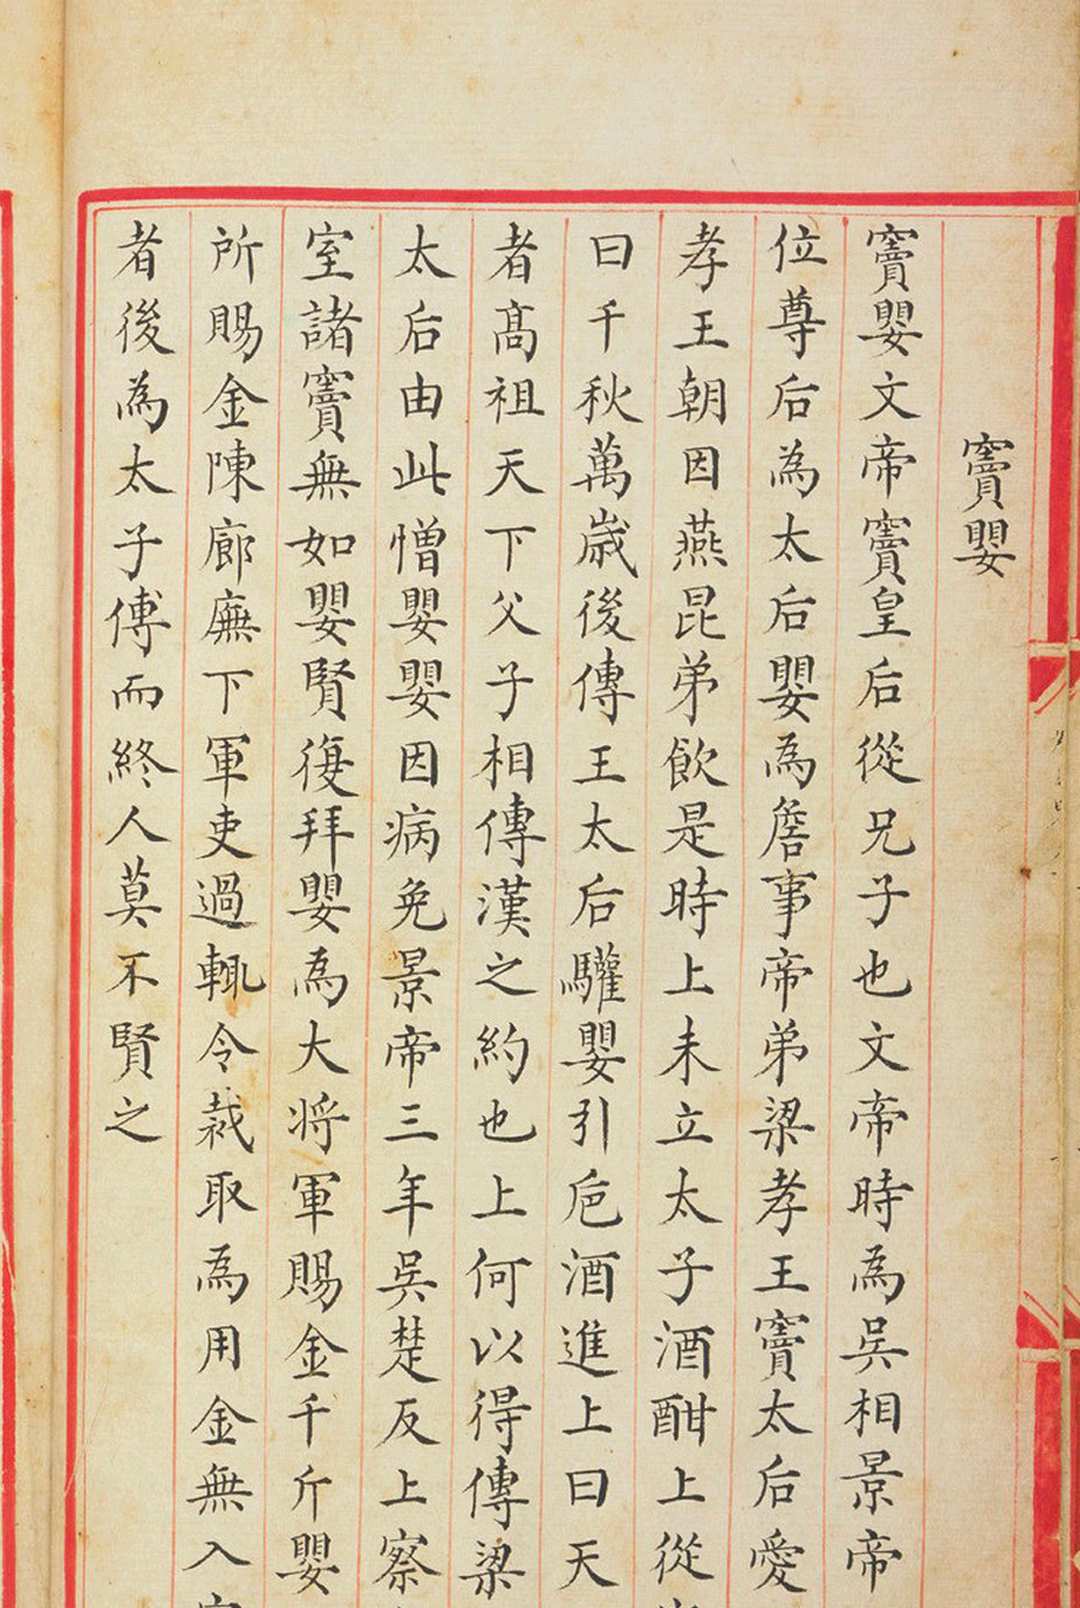 竇嬰
竇嬰文帝竇皇后從兄子也文帝時為吳相景帝
位尊后為太后嬰為詹事帝弟梁孝王竇太后愛
孝王朝因燕昆弟飲是時上未立太子酒酣上從
曰千秋萬歲後傳王太后驩嬰引卮酒進上曰天
者高祖天下父子相傳漢之約也上何以得傳梁
太后由此憎嬰嬰因病免景帝三年吳楚反上察
室諸竇無如嬰賢復拜嬰為大將軍賜金千斤嬰
所賜金陳廊廡下軍吏過輒令裁取為用金無入
者後為太子傅而終人莫不賢之